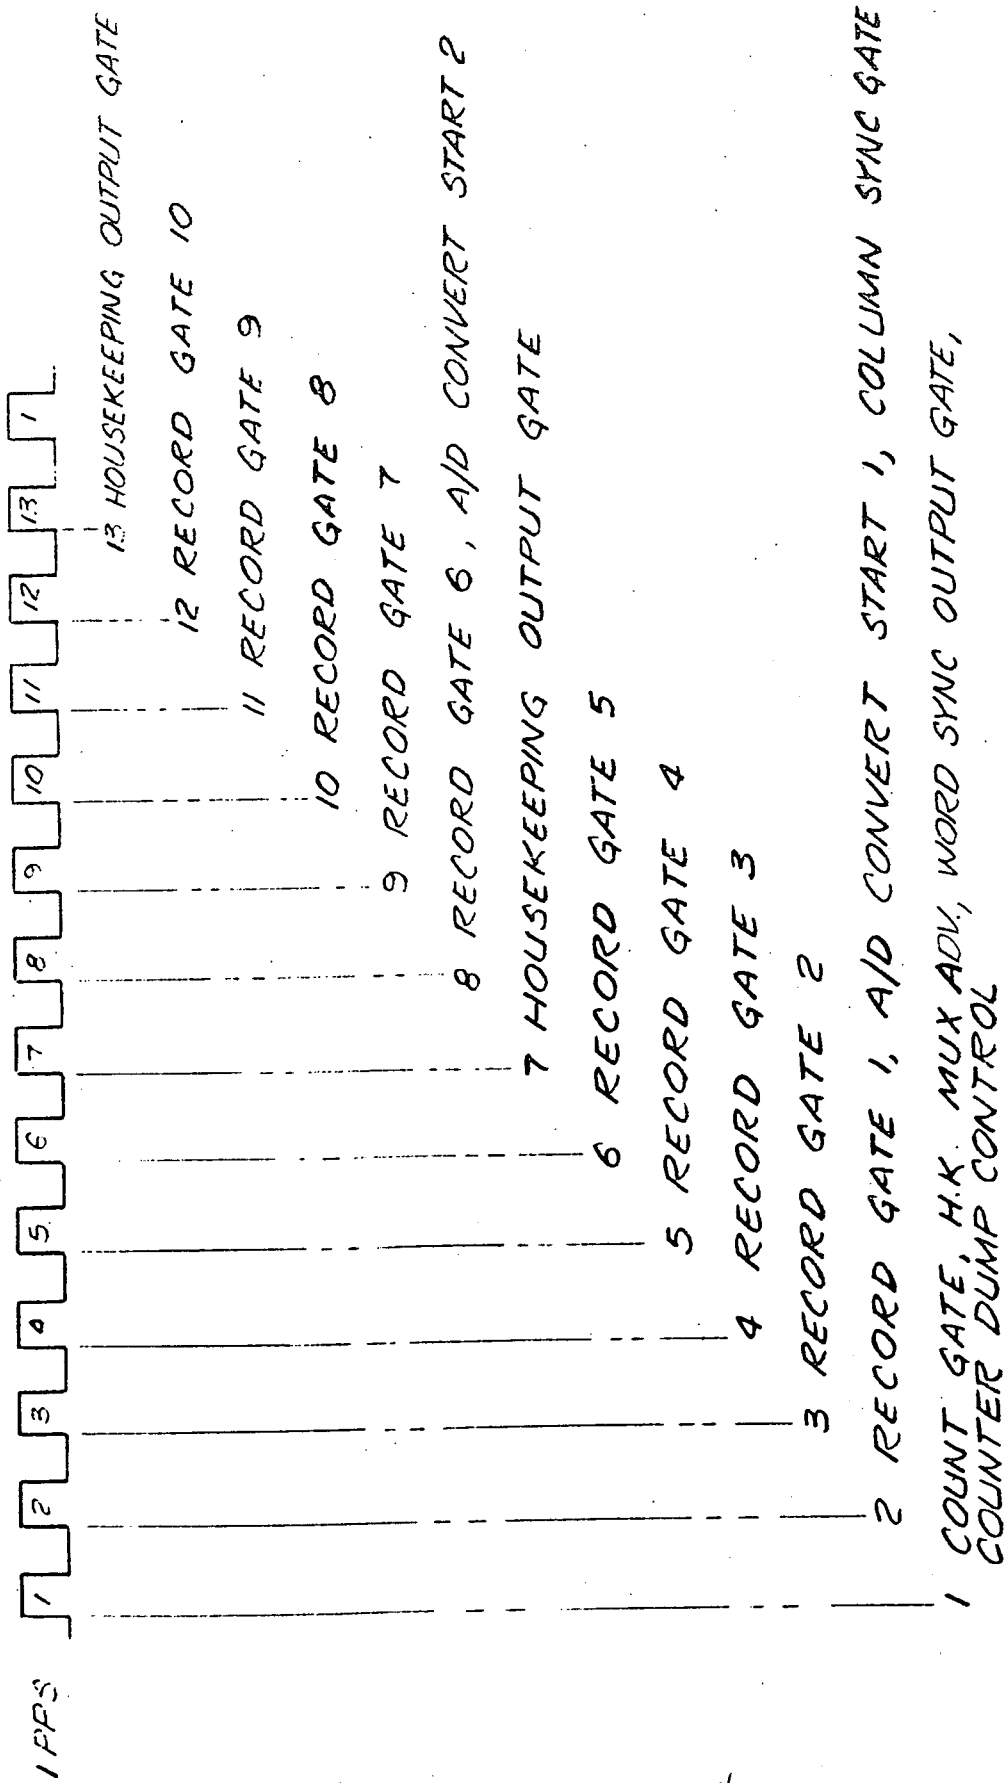 1 PPS
1 2 3 4 5 6 7 8 9 10 11 12 13 1
13 HOUSEKEEPING OUTPUT GATE
12 RECORD GATE 10
11 RECORD GATE 9
10 RECORD GATE 8
9 RECORD GATE 7
8 RECORD GATE 6, A/D CONVERT START 2
7 HOUSEKEEPING OUTPUT GATE
6 RECORD GATE 5
5 RECORD GATE 4
4 RECORD GATE 3
3 RECORD GATE 2
2 RECORD GATE 1, A/D CONVERT START 1, COLUMN SYNC GATE
1 COUNT GATE, H.K. MUX ADV., WORD SYNC OUTPUT GATE,
COUNTER DUMP CONTROL